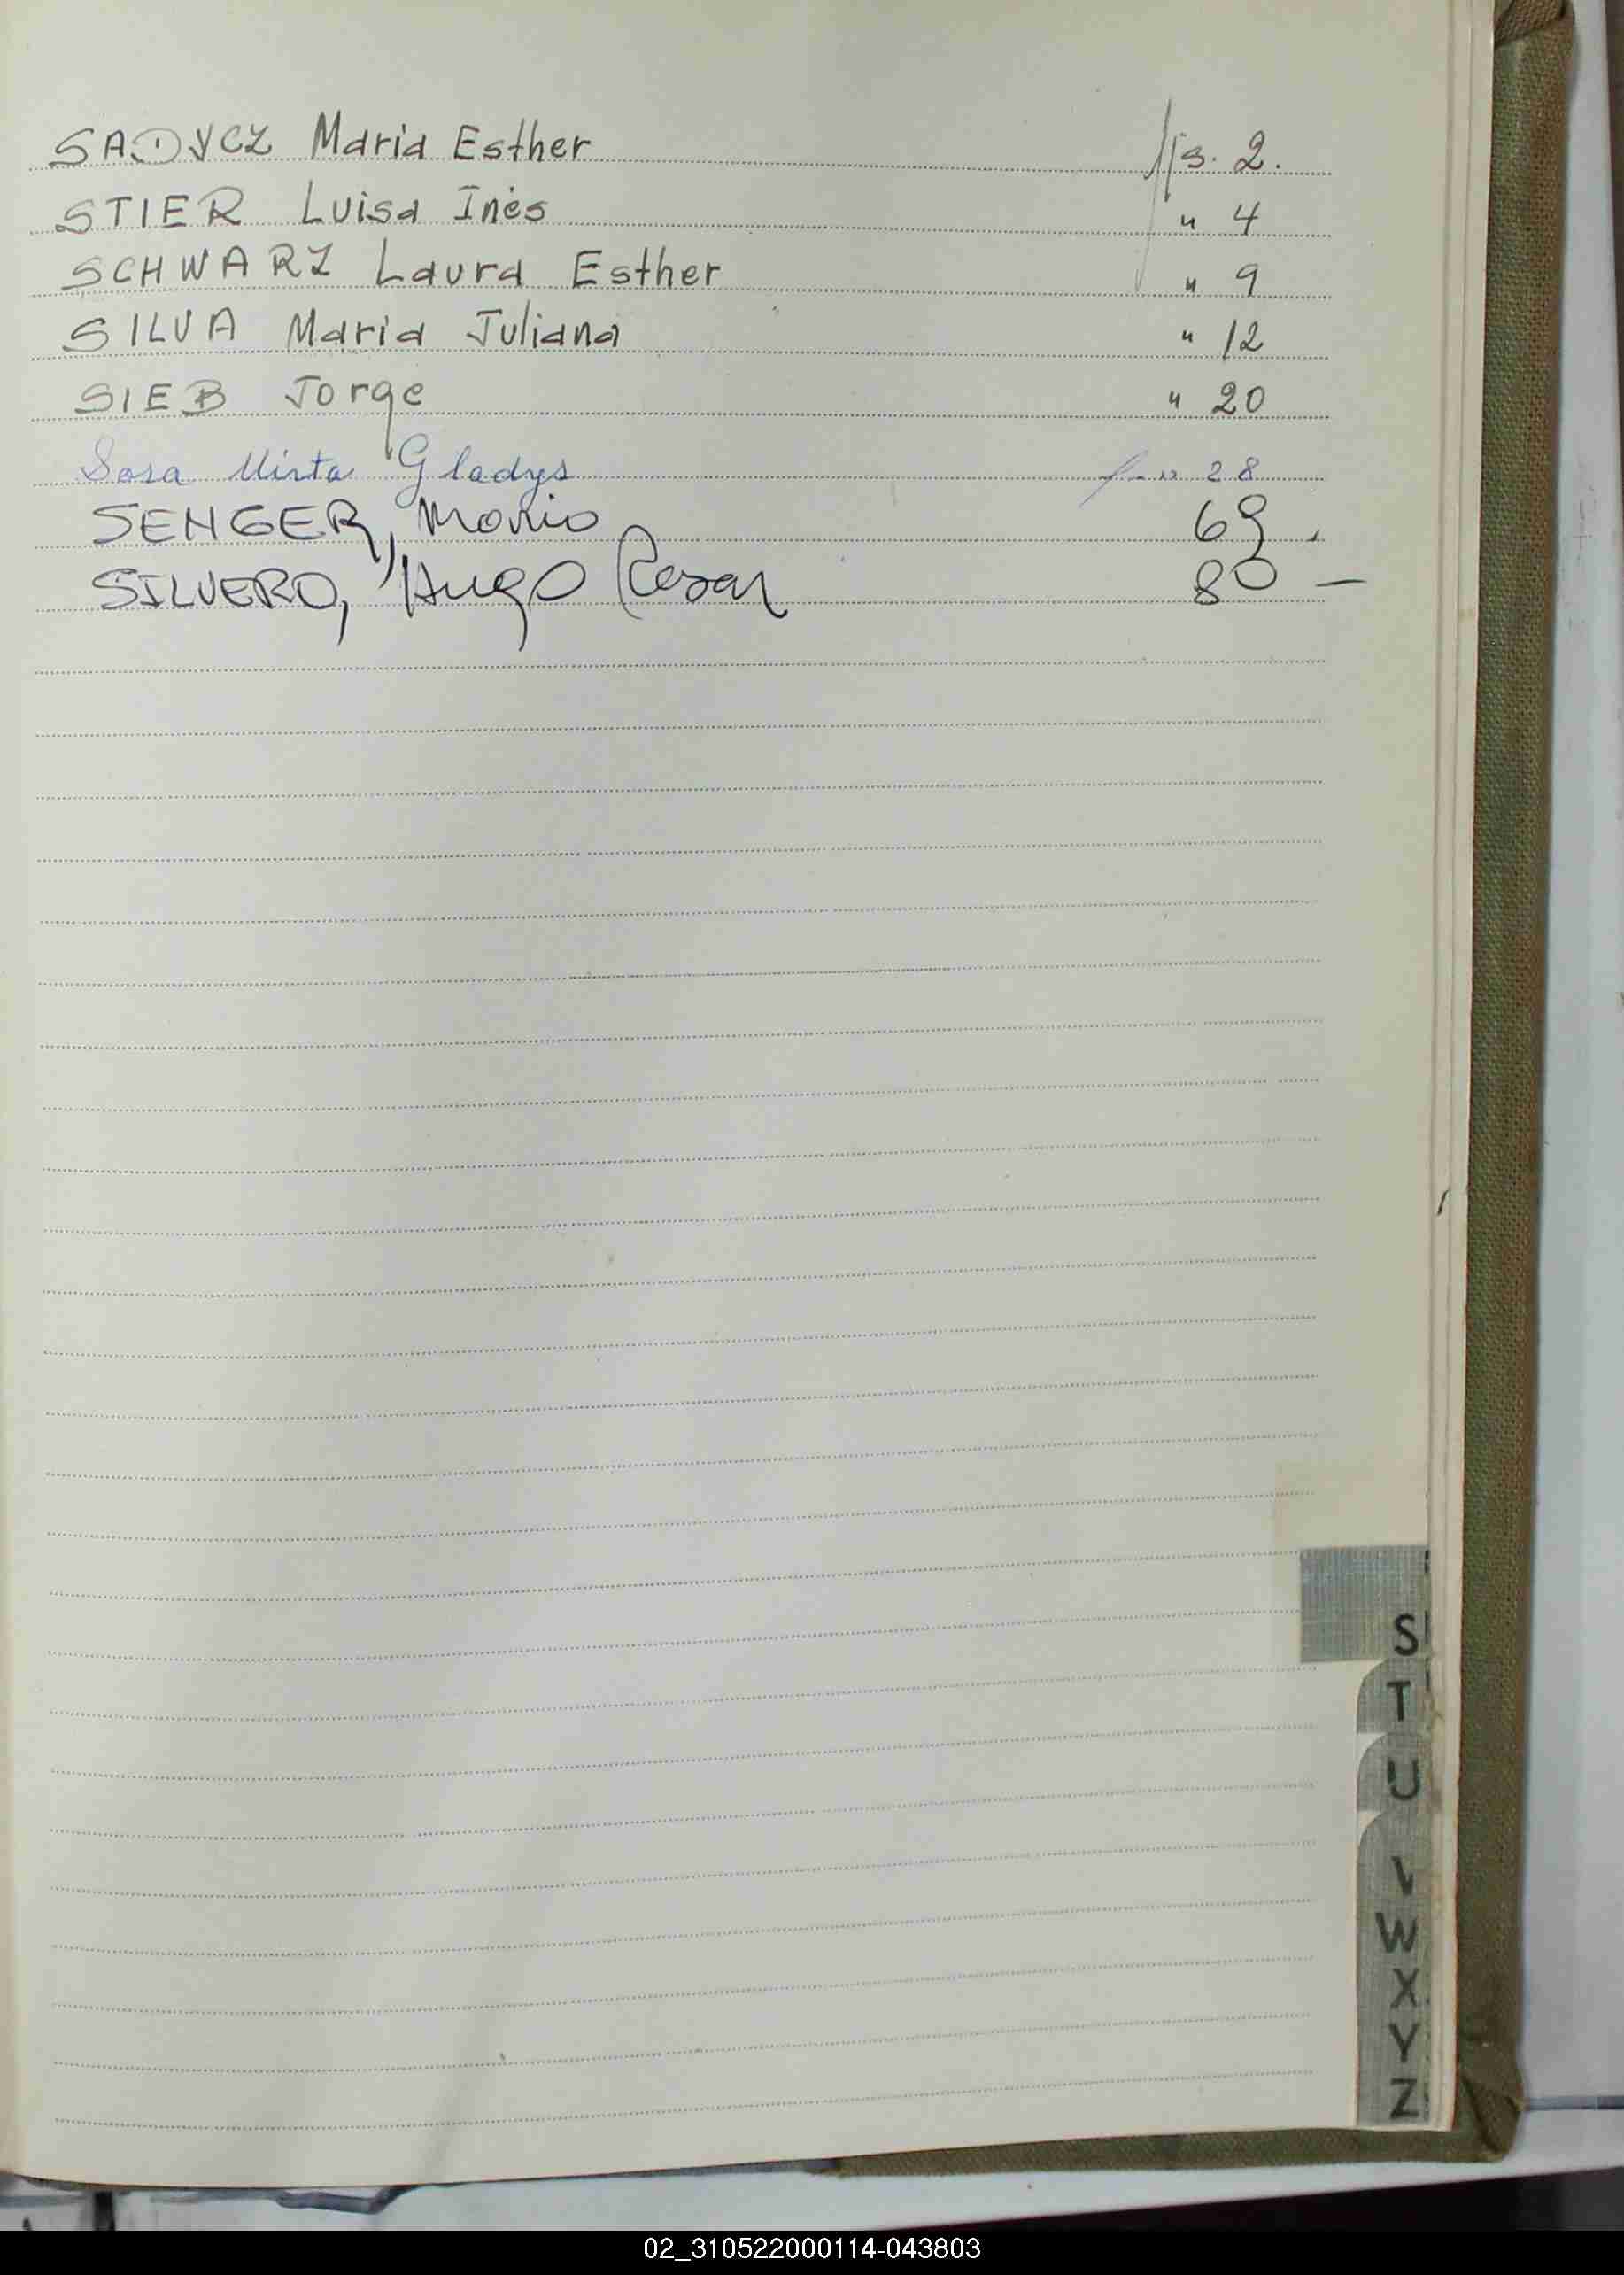 SADYCZ Maria Esther fjs. 2.
STIER Luisa Inés " 4
SCHWARZ Laura Esther " 9
SILVA Maria Juliana " 12
SIEB Jorge " 20
Sosa Mirta Gladys " 28
SENGER, Mario 69
SILVERO, Hugo Cesar 80 —
S
T
U
V
W
X
Y
Z
02_310522000114-043803